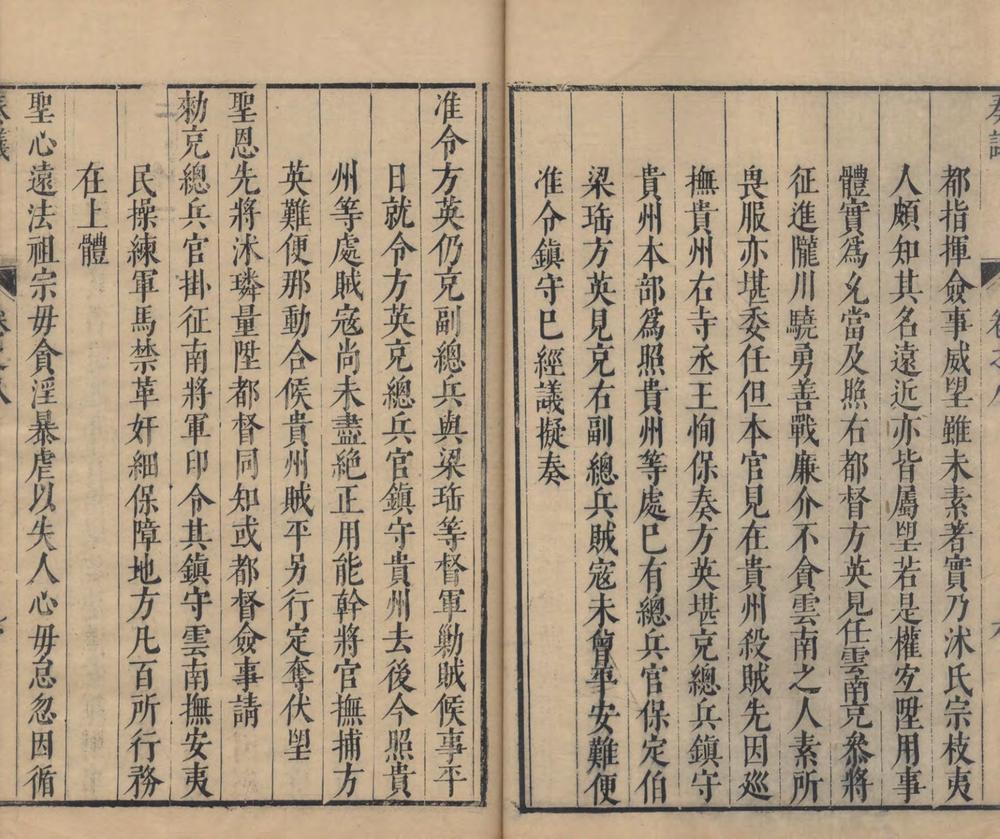 都指揮僉事威望雖未素著實乃沐氏宗枝夷
人頗知其名遠近亦皆屬望若是權宜陞用事
體實爲允當及照右都督方英見任雲南克叅將
征進隴川驍勇善戰廉介不貪雲南之人素所
畏服亦堪委任但本官見在貴州殺賊先因廵
撫貴州右寺丞王恂保奏方英堪克總兵鎮守
貴州本部爲照貴州等處已有總兵官保定伯
梁珤方英見克右副總兵賊寇未曾平安難便
准令鎮守已經議擬奏
准令方英仍克副總兵與梁珤等督軍勦賊候事平
日就令方英克總兵官鎮守貴州去後今照貴
州等處賊寇尚未盡絶正用能幹將官撫捕方
英難便那動合候貴州賊平另行定奪伏望
聖恩先將沐璘量陞都督同知或都督僉事請
勑克總兵官掛征南將軍印令其鎮守雲南撫安夷
民操練軍馬禁革奸細保障地方凡百所行務
在上體
聖心遠法祖宗毋貪淫暴虐以失人心毋怠忽因循